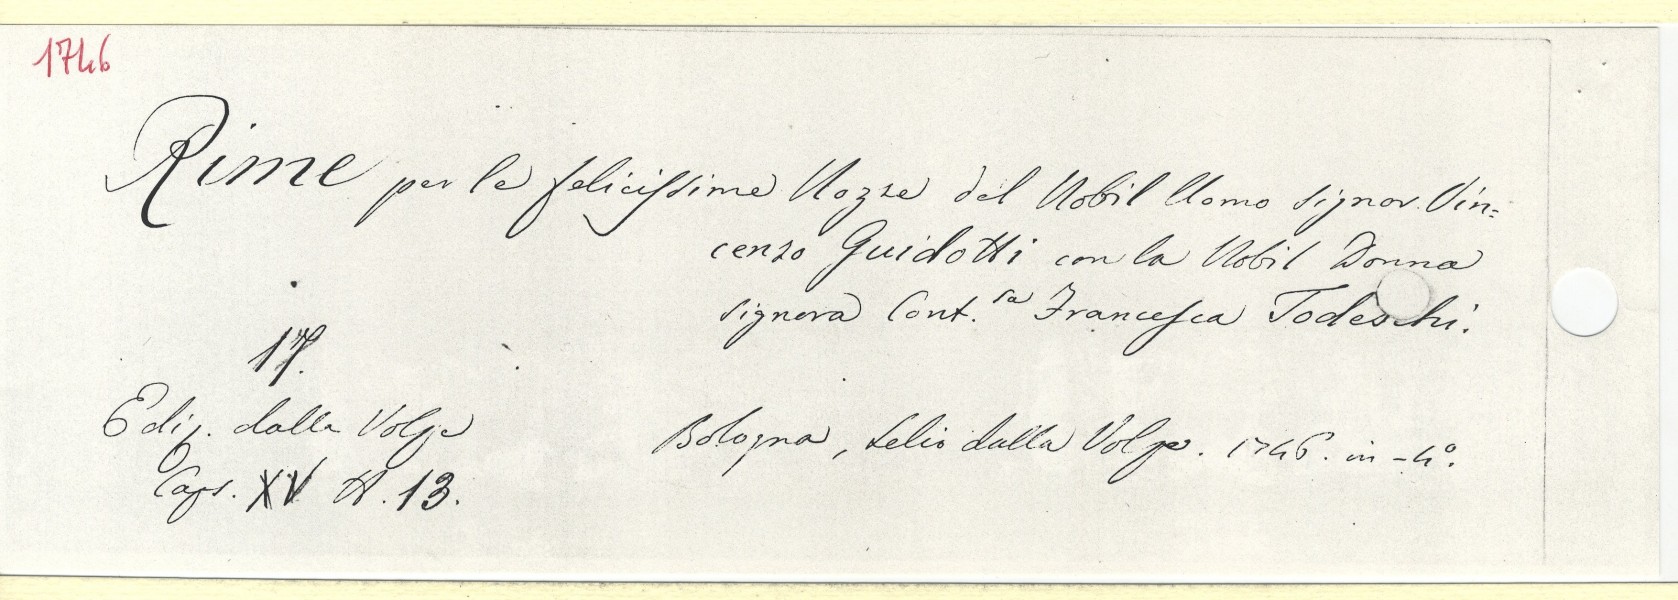 1746
Rime per le felicissime Nozze del Nobil Uomo Signor Vin=
cenzo Guidotti con la Nobil Donna
Signora Cont.sa Francesca Todeschi.
17.
Ediz. dalla Volpe
Caps. XV N. 13.
Bologna, Lelio dalla Volpe. 1746. in-4º.